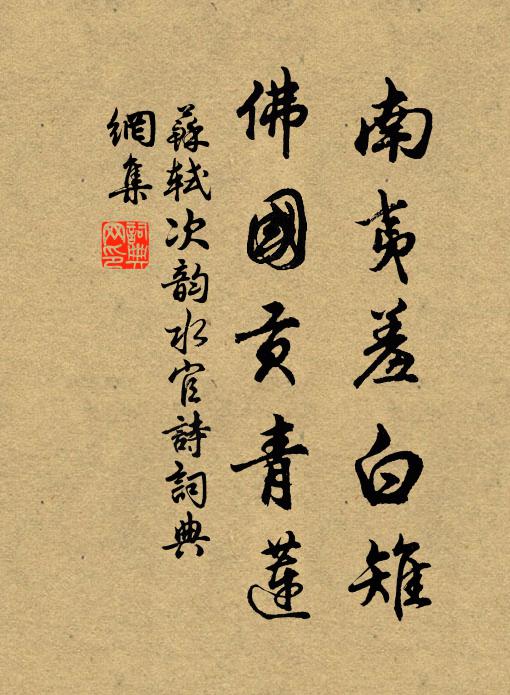 南夷羞白雉
佛國貢青蓮
蘇軾次韵水官詩詞典
網集
詞典
网印